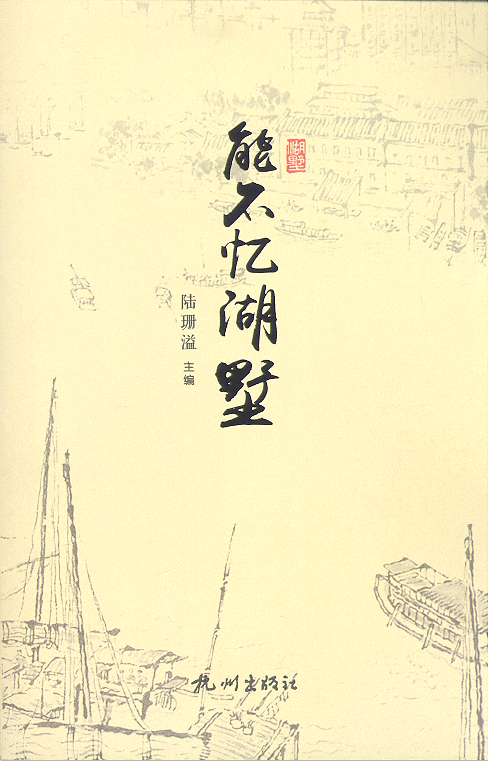 能不忆湖墅
湖墅
陆珊溢 主编
杭州出版社